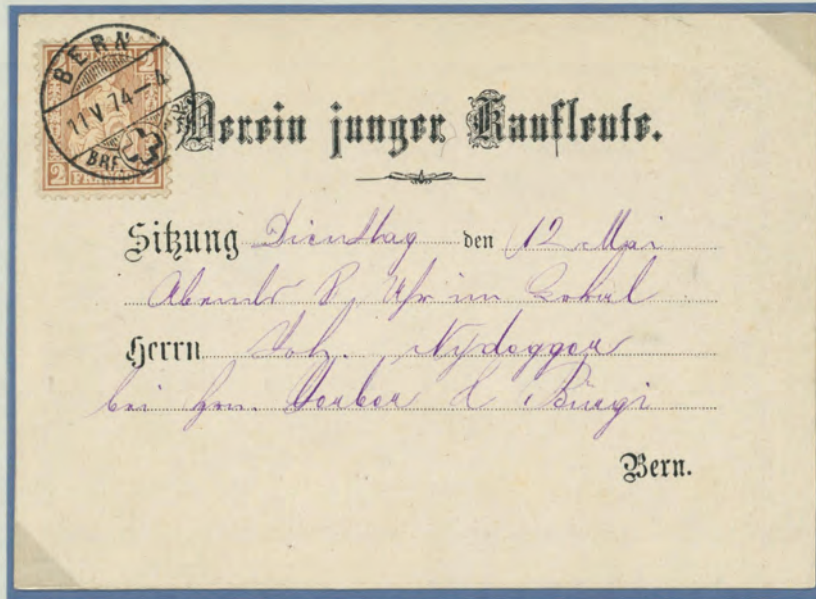 2 2
BERN
11 V 74-4
BRF
2 FRANCO 2
Verein junger Kaufleute.
Sitzung Dienstag den 12 Mai
Abends 8 Uhr im Lokal
Herrn Joh. Nydegger
bei Hrn. & Bürgi
Bern.